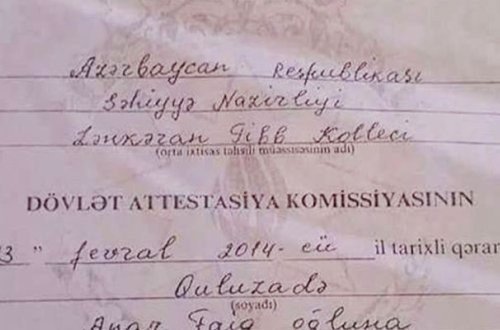 Azərbaycan Respublikası
Səhiyyə Nazirliyi
Lənkəran Tibb Kolleci
(orta ixtisas təhsili müəssisəsinin adı)
DÖVLƏT ATTESTASİYA KOMİSSİYASININ
3 " fevral 2014-cü il tarixli qərar
Quluzadə
(soyadı)
Anar Faiq oğluna